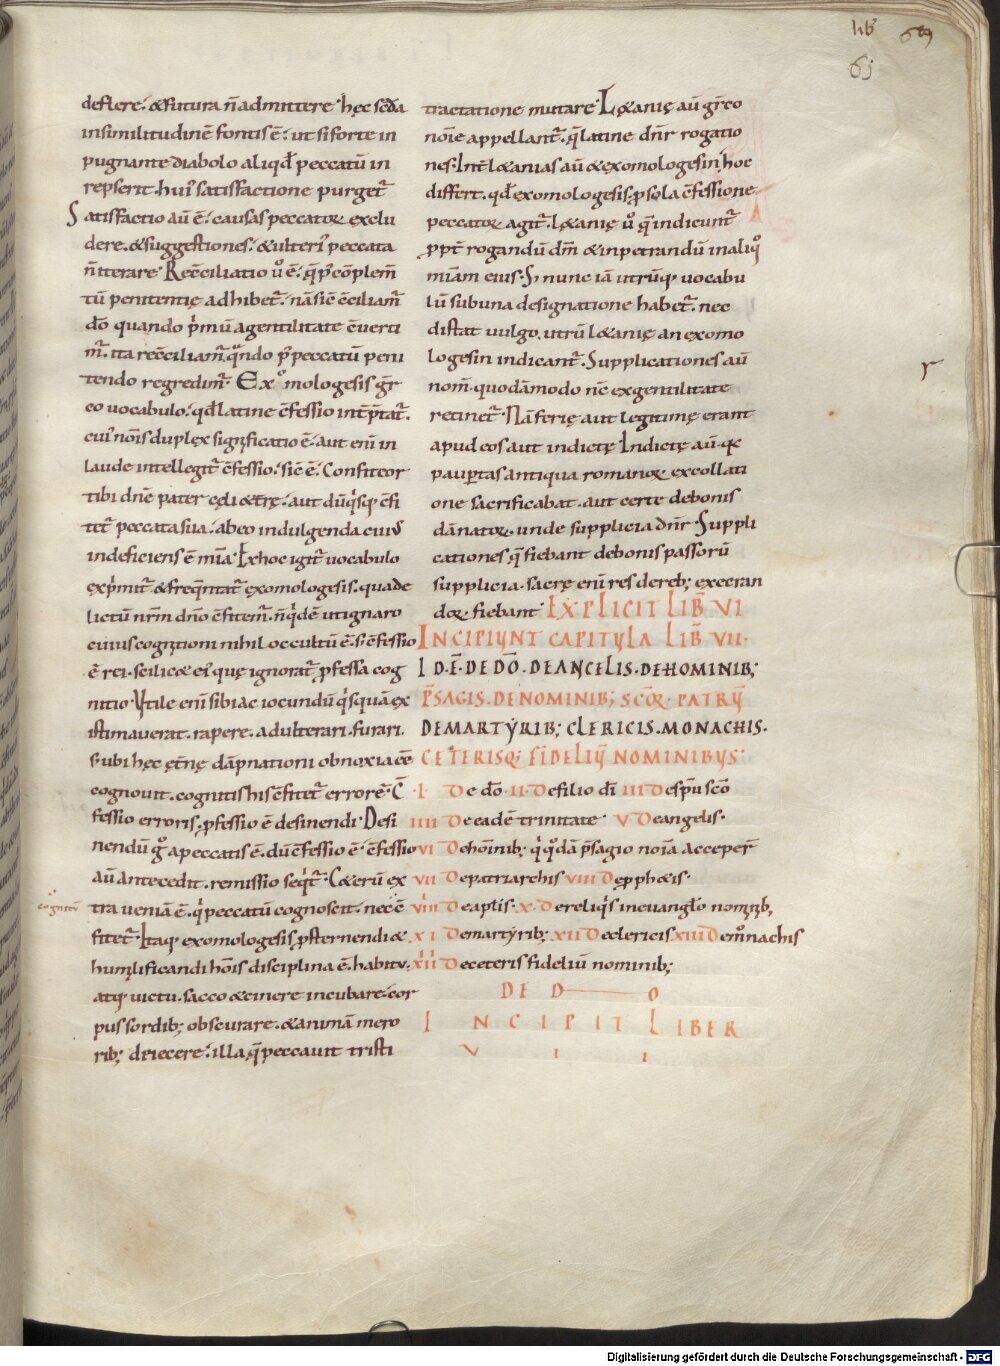 lib 69
65
deflere. &futura n̄admittere. hęc scđa
insimilitudinē fontis ē. ut siforte in
pugnante diabolo aliqđ peccatū in
repserit. hui' satisfactione purget̄.
Satisfactio aū ē. causas peccatoꝝ exclu
dere. &suggestiones. &ulteri' peccata
n̄ iterare. Recc̄iliatio ů ē. q̄ p' cōplem̄
tū penitentię adhibet̄. nā sic c̄ciliam̄
dō quando p'mū agentilitate c̄verti
m̄. ita recc̄iliam̄ qͣndo p' peccatū peni
tendo regredim̄. Exomologesis gr̄
co vocabulo. qđ latine c̄fessio int̄p̄tat̄.
cui' nōis duplex significatio ē. aut eni in
laude intellegit̄ c̄fessio. sic ē. Confiteor
tibi dn̄e pater cęli &trę. aut dū q'sq c̄fi
tet̄ peccata sua. abeo indulgenda cui'
indeficiens ē mīa. Exhoc igit̄ vocabulo
exp'mit̄ &freq̄ntat̄ exomologesis. quade
lictū nr̄m dn̄o c̄fitem̄. n̄ q'dē ut ignaro
cuius cognitioni nihil occultū ē. s; c̄fessio
ē rei. scilic& ei' quę ignorat̄ p̱fessa cog
nitio. Utile eni sibi ac iocundū q'squā ex
istimaverat. rapere. adulterari. furari.
s; ubi hęc ęt̄nę dāpnationi obnoxia ēē
cognovit. cognitis his c̄fitet̄ errorē. C̄
fessio erroris. p̱fessio ē desinendi. Desi
nendū g° apeccatis ē. dū c̄fessio ē. c̄fessio
aū antecedit. remissio seq't̄. C&erū ex
cognitū
tra veniā ē. q' peccatū cognoscit. nec c̄
fitet̄. Itaq exomologesis p̱sternendi &
humilificandi hōis disciplina ē. habitu.
atq victu. sacco &cinere incubare. cor
pus sordib; obscurare. &animā mero
rib; deicere. illa q̄ peccavit tristi
tractatione mutare. L&anię aū gr̄co
nōie appellant̄. q̄ latine dn̄r rogatio
nes. Int̄ l&anias aū &exomologesin. hoc
differt. qđ exomologesis p̱ sola c̄fessione
peccatoꝝ agit̄. L&anię ů q̄ indicunt̄
p̱pt̄ rogandū dm̄ &inpetrandū inaliq°
miam eius. S; nunc iā utrūq vocabu
lū sub una designatione habet̄. nec
distat vulgo. utrū l&anię an exomo
logesin indicant̄. Supplicationes aū
nom̄. quodāmodo nc̄ exgentilitate
retinet̄. Nā ferię aut legitimę erant
apud eos aut indictę. Indictę aū. qe
paup̱tas antiqua romanoꝝ excollati
one sacrificabat. aut certe debonis
dānatoꝝ. unde supplicia dn̄r. Suppli
cationes q̄ fiebant debonis passorū
supplicia. sacrę eni res dereb; execran
doꝝ fiebant. EXPLICIT LIB̄ VI
INCIPIUNT CAPITULA LIB̄ VII.
I D. Ē. DE DŌ. DE ANGELIS. DE HOMINIB;
P̄SAGIS. DE NOMINIB; SCŌꝜ. PATRŪ
DEMARTYRIB; CLERICIS. MONACHIS.
CETERISQ; FIDELIŪ NOMINIBUS.
I De dō. II. De filio dī III De spu scō
IIII De eadē trinitate. V De angelis.
VI De hoīnib; q' q°dā p̄sagio noīa acceper̄
VII De patriarchis VIII De p̱ph&is.
VIIII De aplis. X. De reliq's in evanglo nominib,
XI De martyrib; XII De clericis XIII De monachis
XIIII De ceteris fideliū nominib;
DE DO
INCIPIT LIBER
VII
r
Digitalisierung gefördert durch die Deutsche Forschungsgemeinschaft - DFG